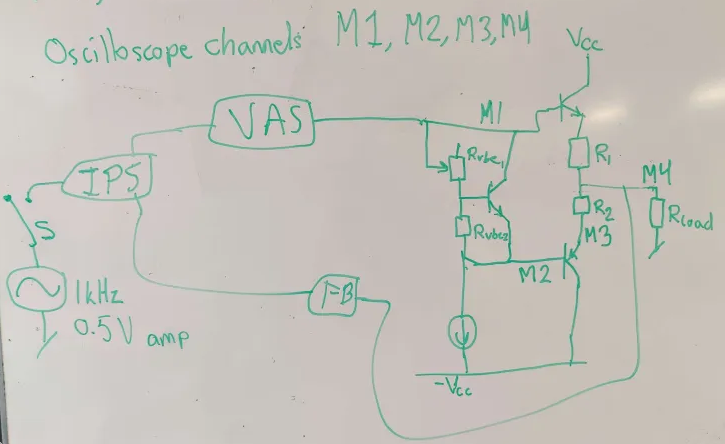 Oscilloscope channels: M1, M2, M3, M4
Vcc
M1
VAS
Rvbe1
R1
IPS
M4
R2
Rload
S
Rvbe2
M3
M2
1kHz
FB
0.5V amp
-Vcc